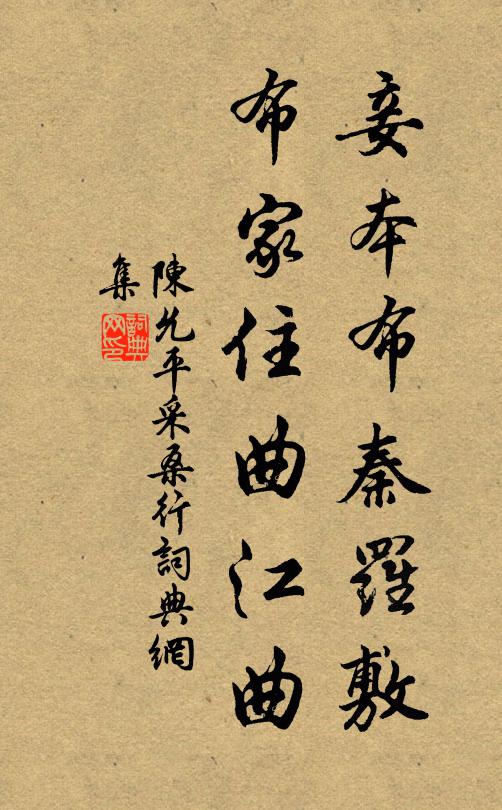 妾本布秦羅敷
布家住曲江曲
陳允平采桑行詞典網
集
詞典
网印